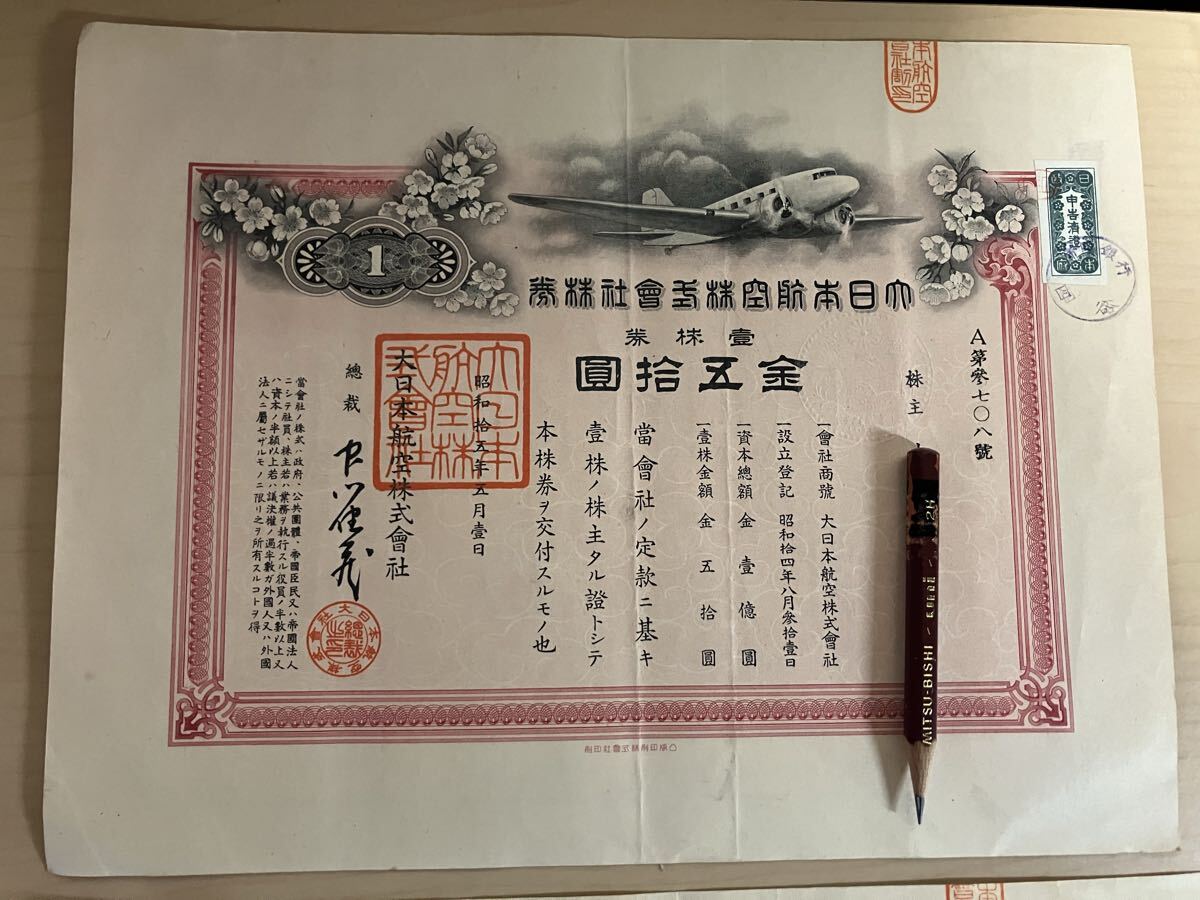 大日本航空株式會社株券
壹株券
金五拾圓
1
A第參七〇八號
株主
一會社商號 大日本航空株式會社
一設立登記 昭和拾四年八月參拾壹日
一資本總額 金壹億圓
一壹株金額 金五拾圓
當會社ノ定款ニ基キ
壹株ノ株主タル證トシテ
本株券ヲ交付スルモノ也
昭和拾五年五月壹日
大日本航空株式會社
總裁
當會社ノ株式ハ政府、公共團體、帝國臣民又ハ帝國法人
ニシテ社員、株主若ハ業務ヲ執行スル役員ノ半數以上又
ハ資本ノ半額以上若ハ議決權ノ過半數ガ外國人又ハ外國
法人ニ屬セザルモノニ限リ之ヲ所有スルコトヲ得
大日本航空株式會社
大日本航空株式會社
總裁之印
申告濟證
銀行
凸版印刷株式會社印刷
MITSU-BISHI
2H